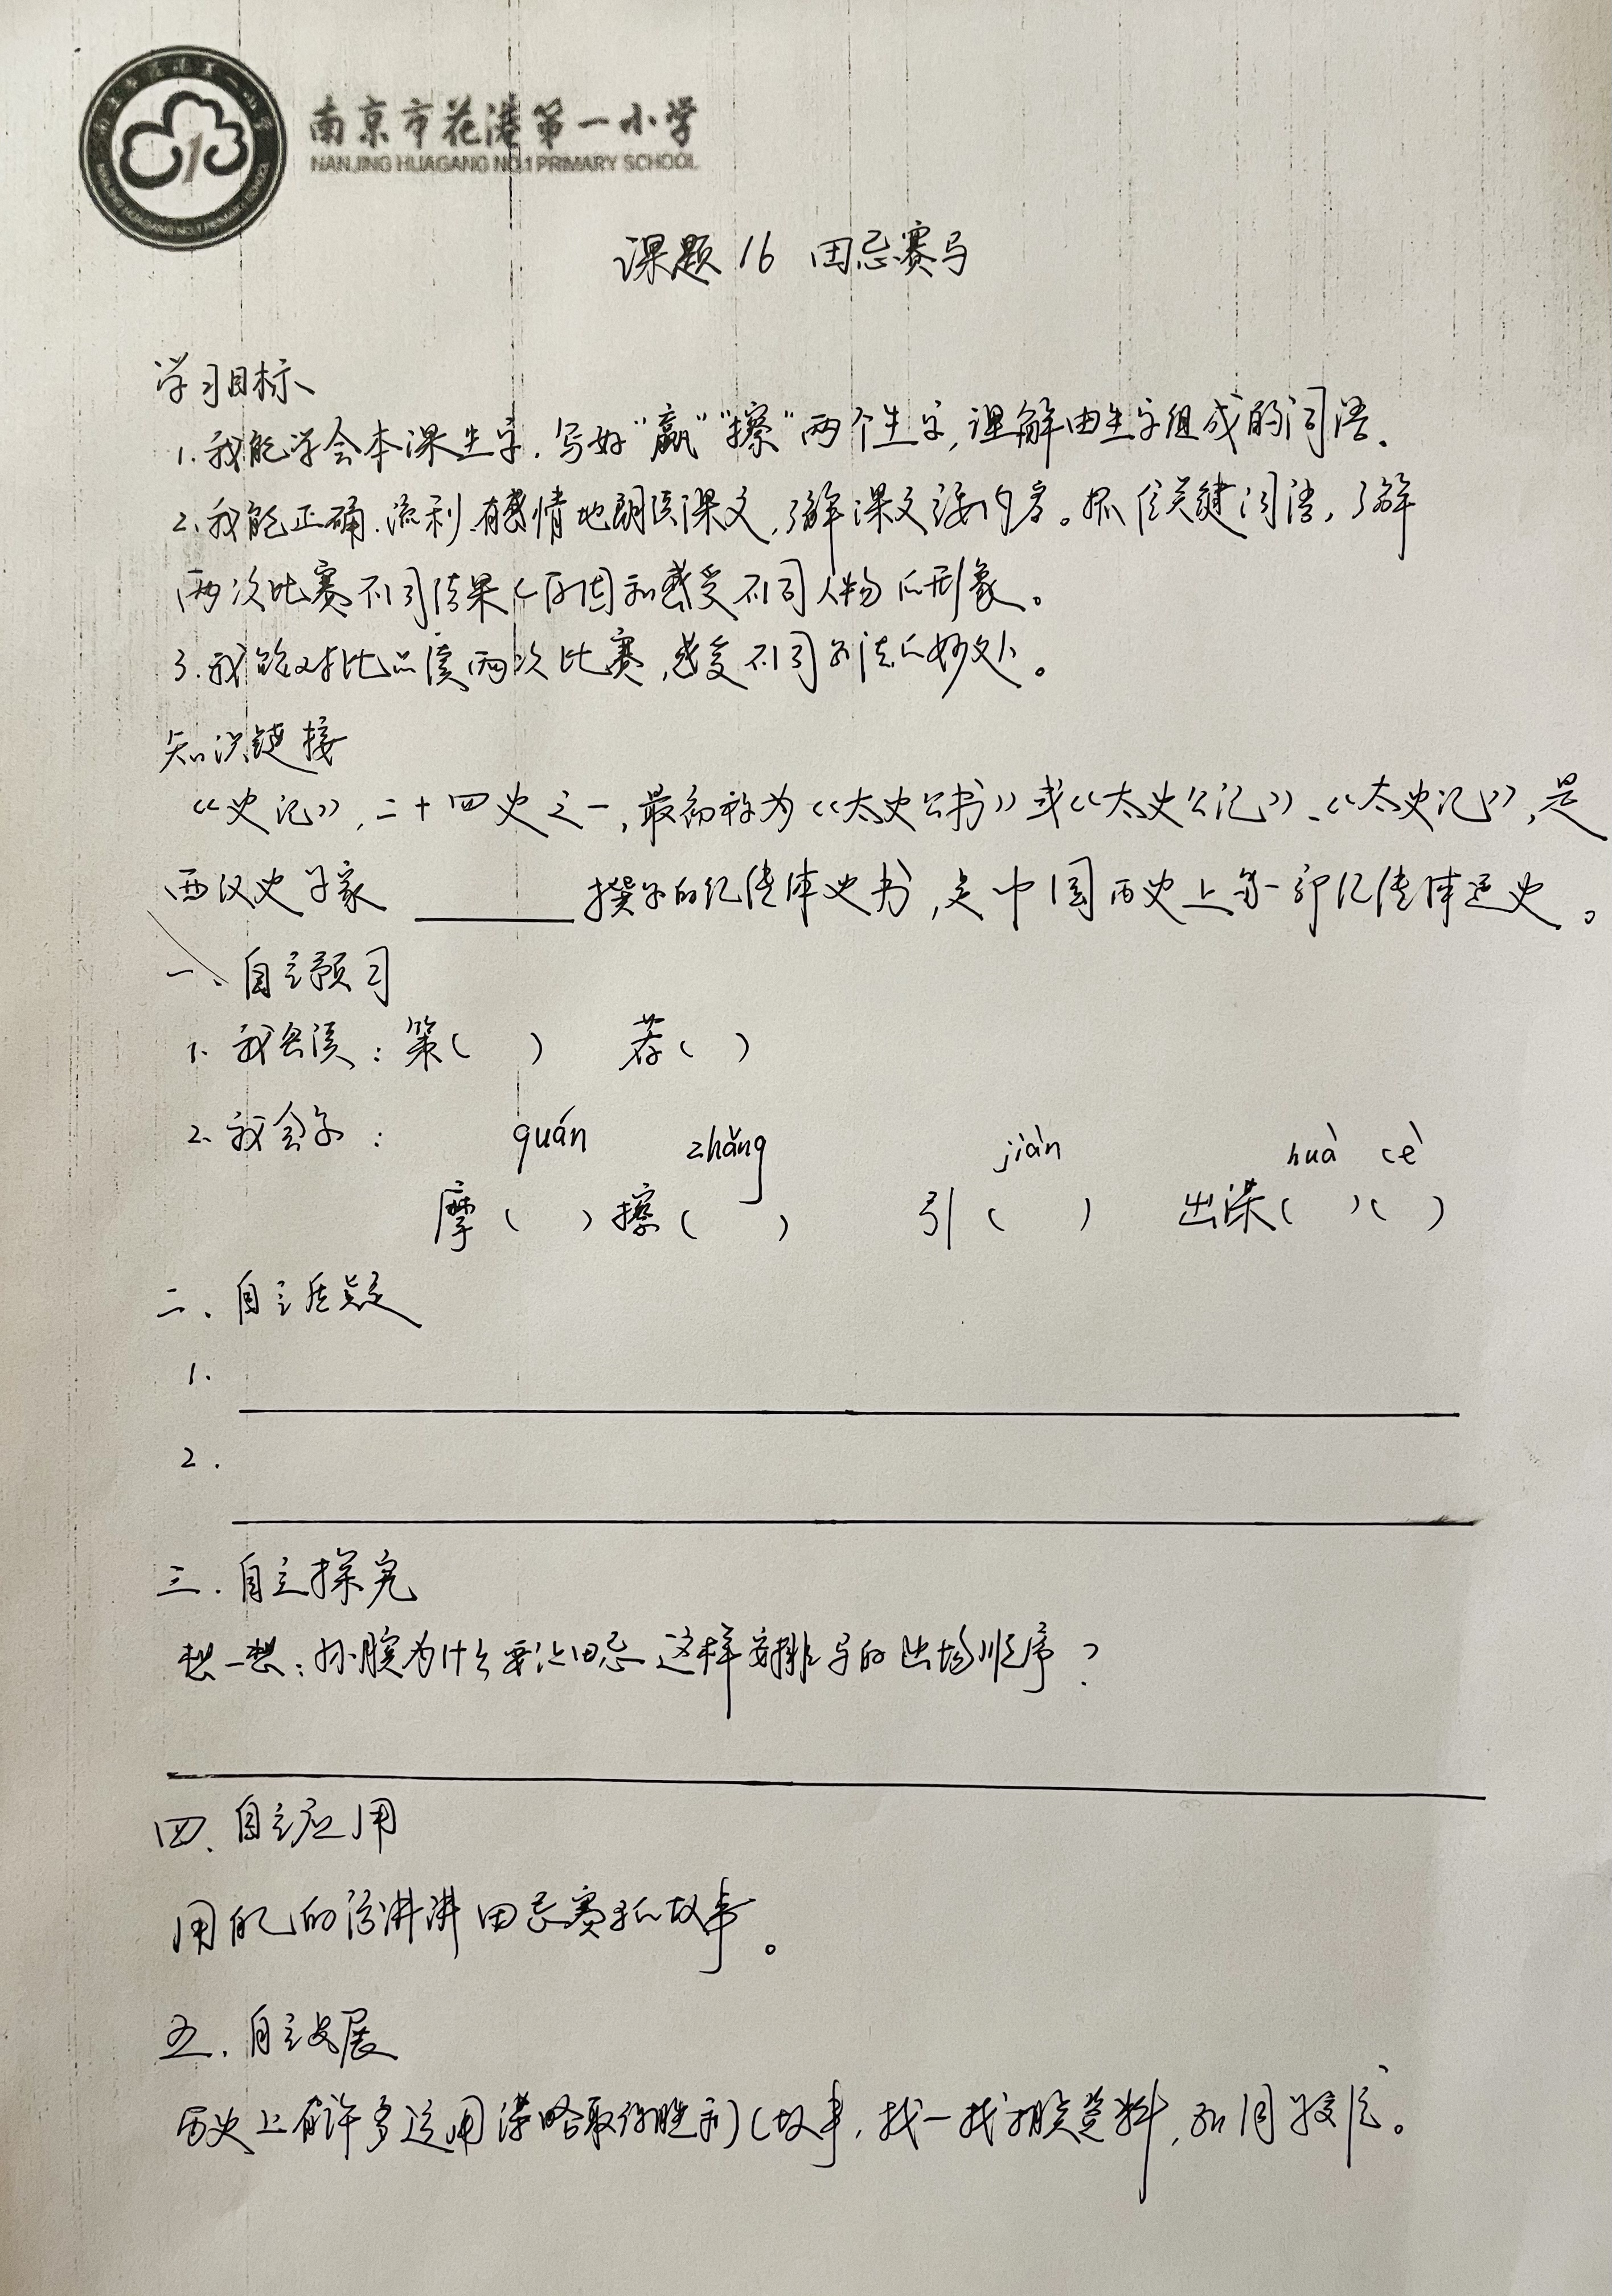 南京市花港第一小学
NANJING HUAGANG NO.1 PRIMARY SCHOOL
课题16 田忌赛马
学习目标
1.我能学会本课生字,写好“赢”“擦”两个生字,理解由生字组成的词语.
2.我能正确.流利.有感情地朗读课文,了解课文主要内容。抓住关键词语,了解
两次比赛不同结果的原因和感受不同人物的形象。
3.我能对比品读两次比赛,感受不同写法的妙处。
知识链接
《史记》,二十四史之一,最初称为《太史公书》或《太史公记》、《太史记》,是
西汉史学家 撰写的纪传体史书,是中国历史上第一部纪传体通史。
一、自主预习
1.我会读:策( ) 荐( )
2.我会写:
quán zhǎng jiàn huà cè
摩( )擦( ) 引( ) 出谋( )( )
二、自主质疑
1.
2.
三.自主探究
想一想:孙膑为什么要让田忌这样安排马的出场顺序?
四、自主应用
用自己的话讲讲田忌赛马的故事。
五.自主发展
历史上有许多运用谋略取得胜利的故事,找一找相关资料,和同学交流。